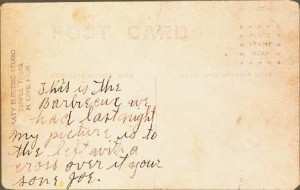 POST CARD
KATY ELECTRIC STUDIO
TEMPLE TEXAS
STAMP
HERE
This is the
Barbecue we
had last night
my picture is to
the left with a
cross over it your
sone Joe.